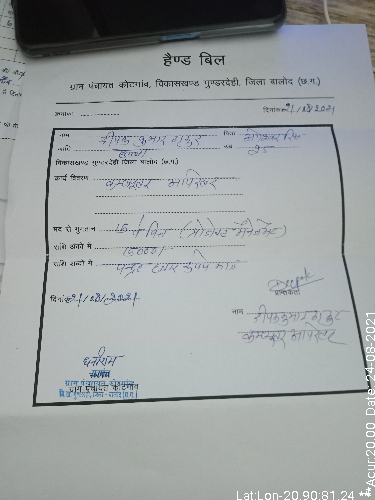 हैण्ड बिल
ग्राम पंचायत कोटगांव, विकासखण्ड गुण्डरदेही, जिला बालोद (छ.ग.)
क्रमांक दिनांक 21/08/2021
नाम दीपक कुमार ठाकुर पिता
जाति उम्र 25
विकासखण्ड गुण्डरदेही जिला बालोद (छ.ग.)
कार्य विवरण कम्प्यूटर आपरेटर
मद से भुगतान 15 वें वित्त
राशि अंको में
राशि शब्दो में पन्द्रह हजार रूपये मात्र
दिनांक 21/08/2021
Deepak
प्राप्तकर्ता
नाम दीपक कुमार ठाकुर
कम्प्यूटर आपरेटर
धनीराम
सरपंच
ग्राम पंचायत कोटगांव
Lat:Lon-20.90:81.24 **Acur:20.00 Date: 24-08-2021